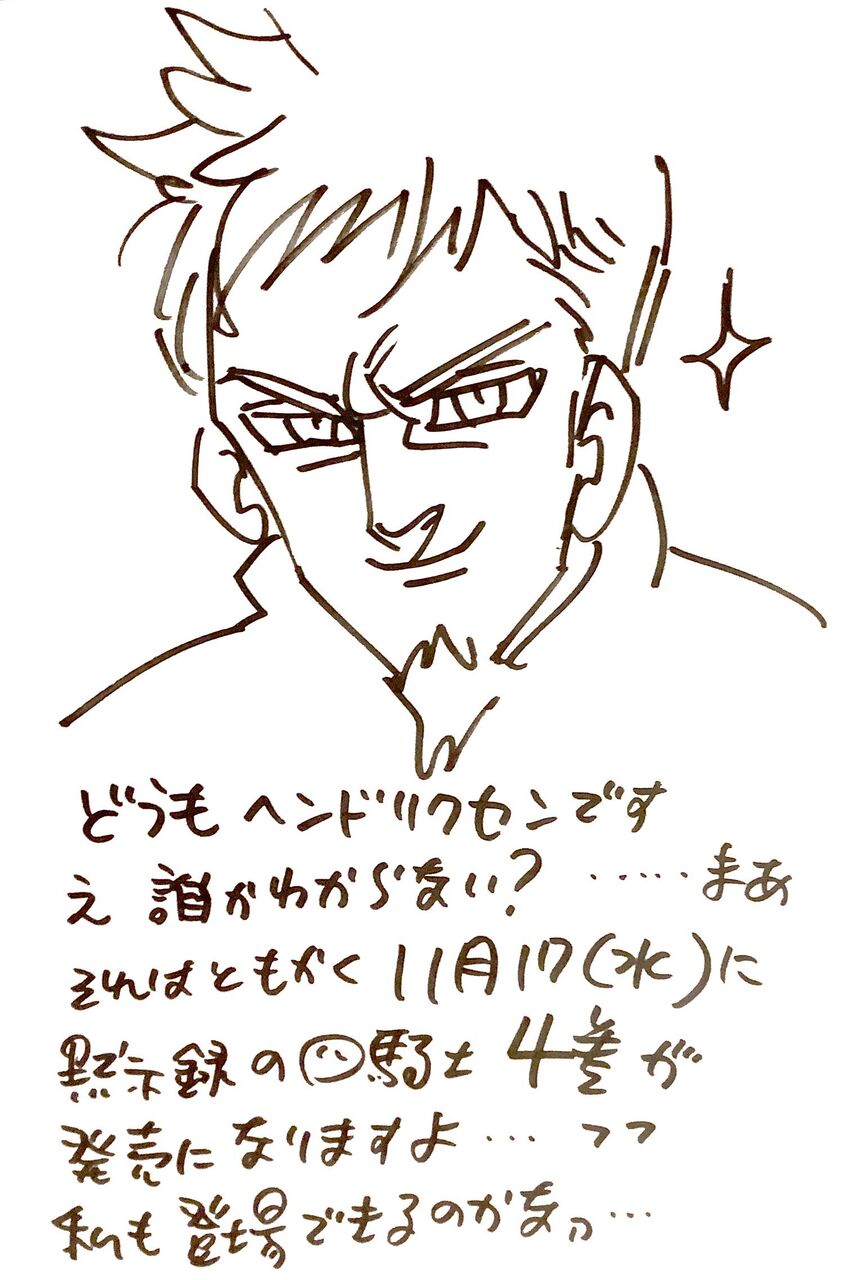 どうも ヘンドリクセンです
え 誰かわからない? ……まあ
それはともかく 11月17(水)に
黙示録の四騎士 4巻が
発売になりますよ… フフ
私も登場できるのかなッ…